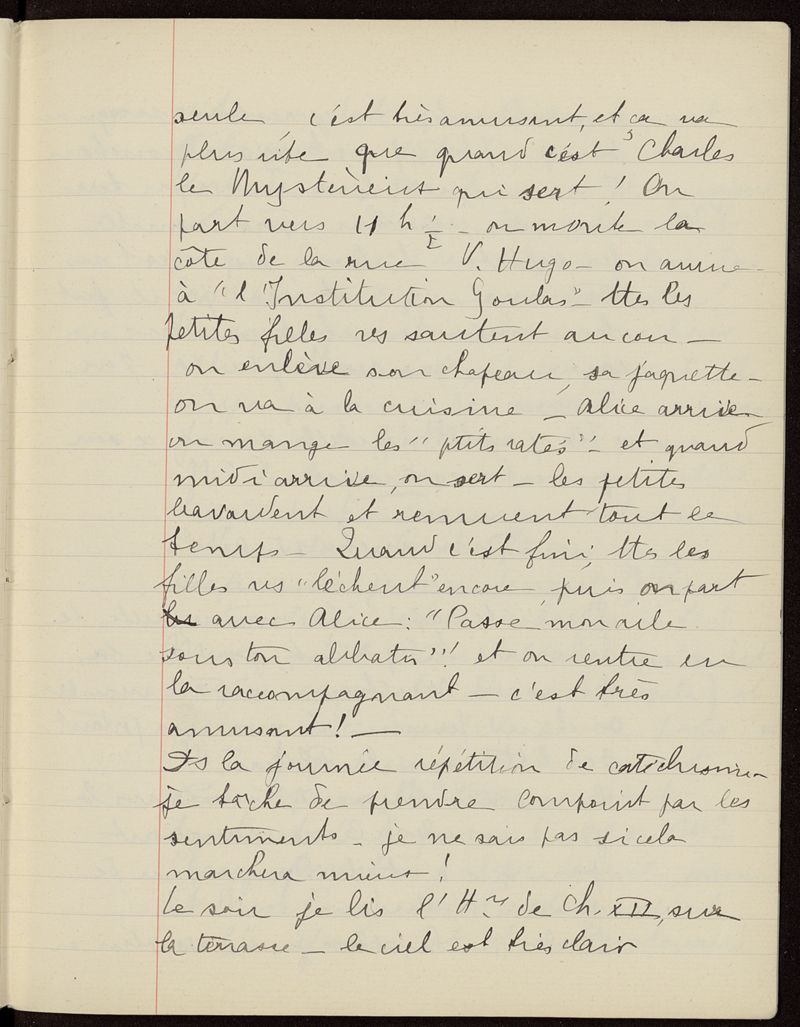 seule, c'est très amusant, et ça va
plus vite que quand c'est Charles
le Mystérieux qui sert ! On
part vers 11 h ½ - on monte la
côte de la rue V. Hugo - on arrive
à "l'Institution Goulas" - ttes les
petites filles ns sautent au cou -
on enlève son chapeau, sa jaquette -
on va à la cuisine - Alice arrive -
on mange les "ptits ratés" - et quand
midi arrive, on sert - les petites
bavardent et remuent tout le
temps - Quand c'est fini, ttes les
filles ns "lèchent" encore, puis on part
avec Alice : "Passe mon aile
sous ton abbatis" ! et on rentre en
la raccompagnant - c'est très
amusant ! -
Ds la journée répétition de catéchisme -
je tâche de prendre Compoint par les
sentiments - je ne sais pas si cela
marchera mieux !
Le soir je lis l'Hre de Ch. XII, sur
la terrasse - le ciel est très clair